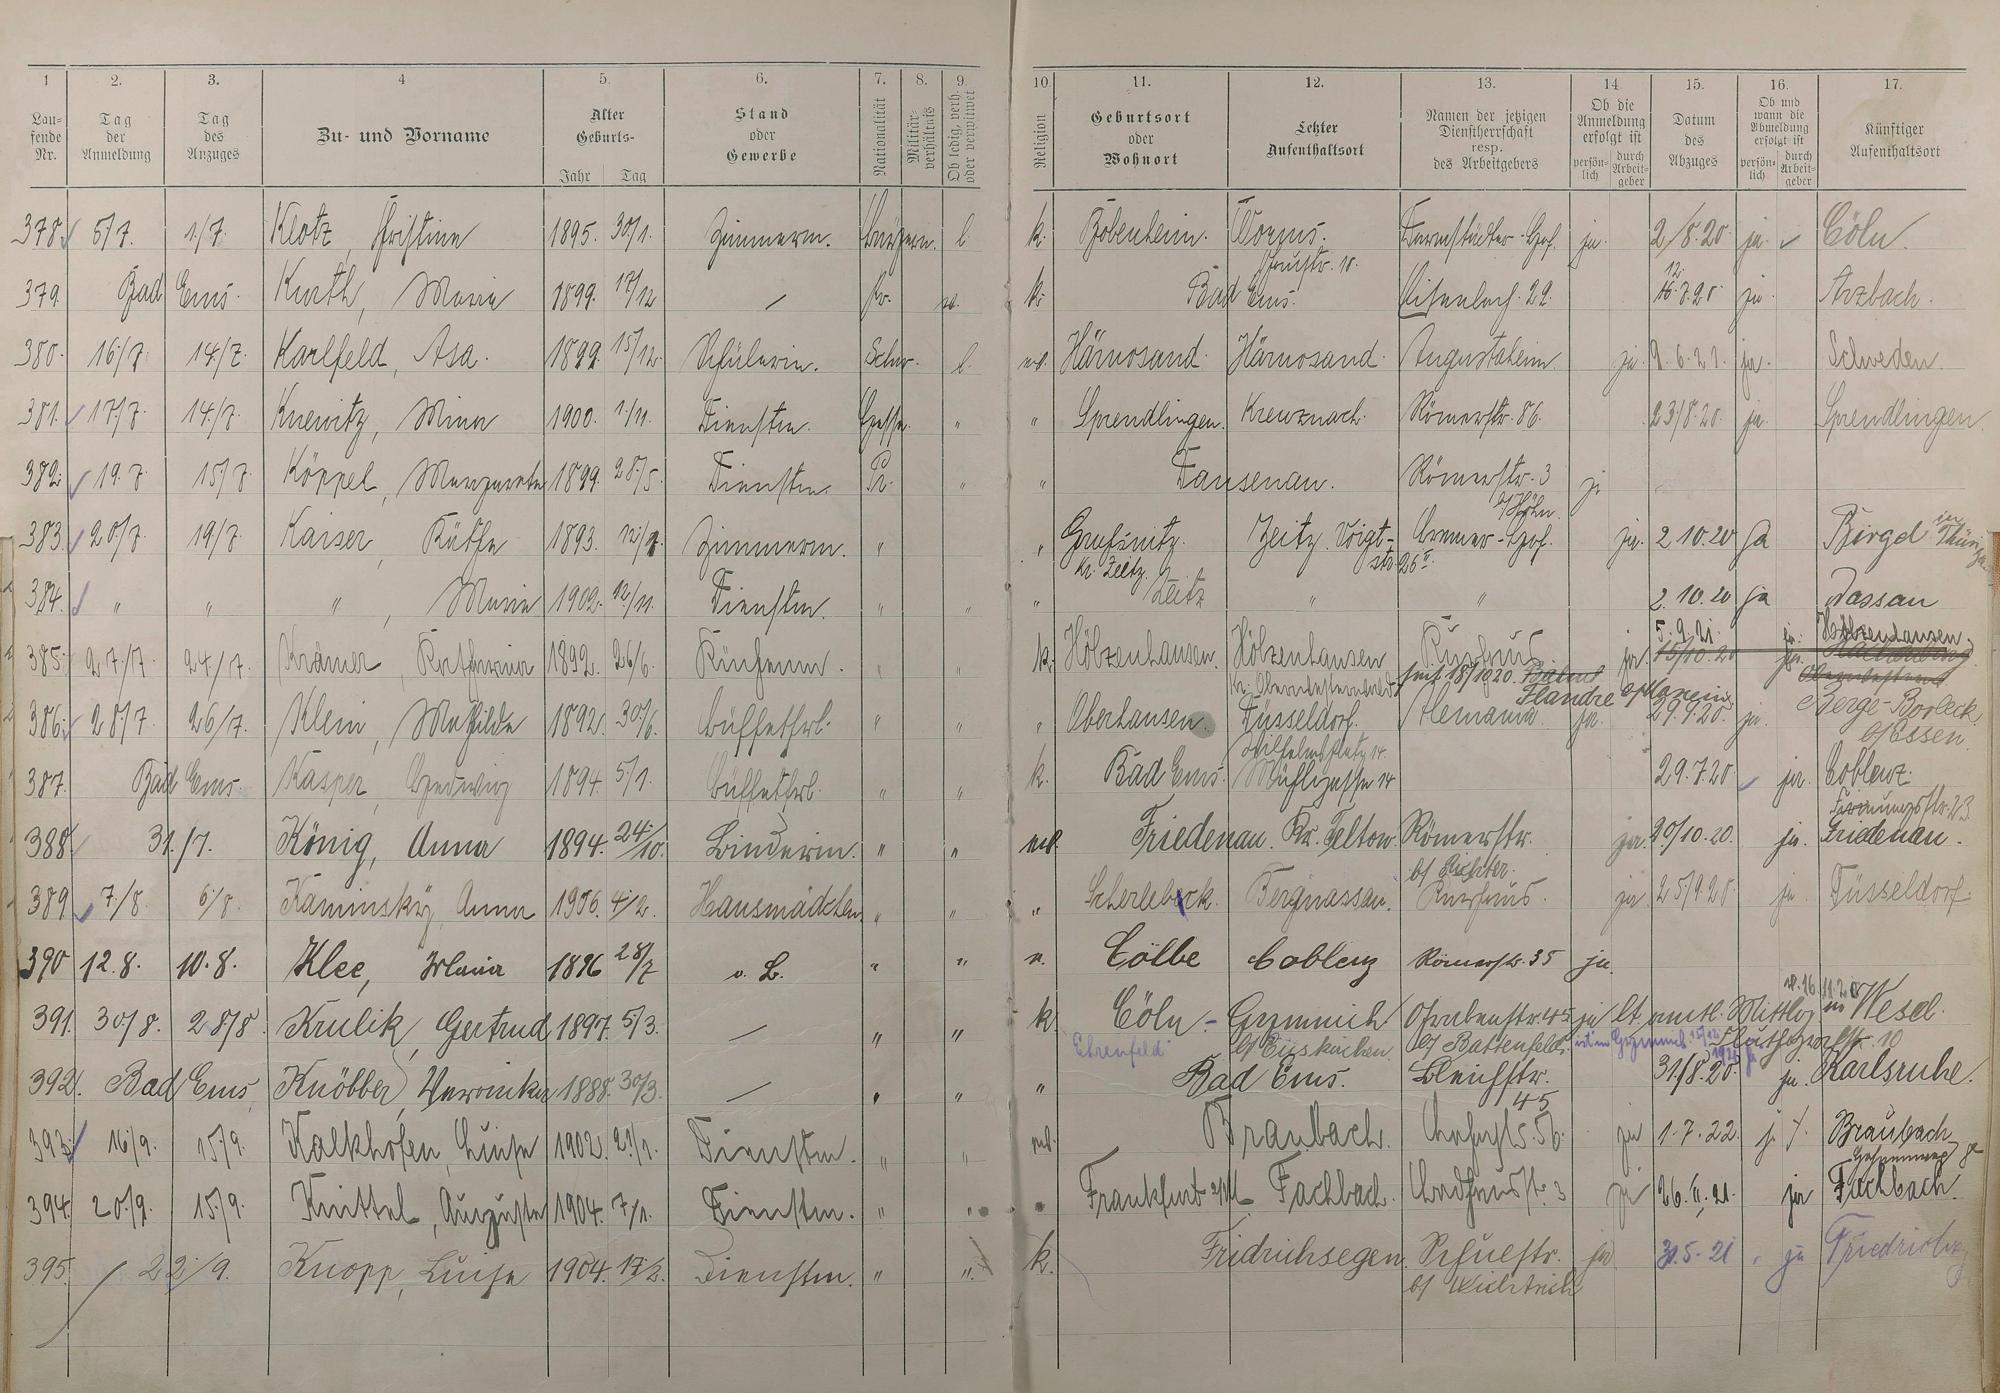 1 2. 3. 4 5. 6. 7. 8. 9. 10. 11. 12. 13. 14 15. 16. 17.
Lau-
fende
Nr.
Tag
der
Anmeldung
Tag
des
Anzuges
Zu- und Vorname
Alter
Geburts-
Jahr Tag
Stand
oder
Gewerbe
Nationalität
Militär-
verhältnis
Ob ledig, verh.
oder verwitwet
Religion
Geburtsort
oder
Wohnort
Letzter
Aufenthaltsort
Namen der jetzigen
Dienstherrschaft
resp.
des Arbeitgebers
Ob die
Anmeldung
erfolgt ist
persön-
lich
durch
Arbeit-
geber
Datum
des
Abzuges
Ob und
wann die
Abmeldung
erfolgt ist
persön-
lich
durch
Arbeit-
geber
Künftiger
Aufenthaltsort
378. 5/7. 1/7. Klotz, Christine 1895. 30/1. Zimmerm. l k. Bobenheim. Worms. Darmstädter-Hof. ja. 2/8.20 ja. Cöln.
379. Bad Ems. Kurth, Maria 1899. 17/12 / Pr. k. Bad Ems. 29. ja. Arzbach.
380. 16/7. 14/7. Karlfeld, Asa. 1899. 15/12 Schülerin. Schw. l. Härnosand. Härnosand. Augustaheim. ja. 9.6.21. ja. Schweden.
381. 17/7. 14/7. Knewitz, Mina 1900. 1/11. Dienstm. Hessen " " Sprendlingen. Kreuznach. Römerstr. 86. 23/8.20. ja. Sprendlingen
382. 19.7. 15/7. Köppel, Margarete 1899. 28/5. Dienstm. Pr. " " Dausenau. Römerstr. 3 ja
b/ Höhn.
383. 20/7. 19/7. Kaiser, Käthe 1893. Zimmerm. " " Zeitz. Voigt- Bremer-Hof. ja. 2.10.20 Ja Bürgel in Thüring.
Kr. Zeitz. str. 26
384. " " " , Marie 1902. 12/11. Dienstm. " " " Zeitz " " 2.10.20 Ja Nassau
385. 27/7. 24/7. Krämer, Katharina 1892. 26/6. " " k. Hölzenhausen. Hölzenhausen Kurhaus ja. 5.9.21. 15/10.20 ja. Holzenhausen
seit 18/10 20.
Flandre
386. 28/7. 26/7. Klein, Mathilde 1892. 30/6. Büffetfrl. " " " Oberhausen. Düsseldorf. Alemania. ja. 29.9.20. ja. Berge-Borbeck
b/ Essen.
387. Bad Ems. Kasper, Hedwig 1894. 5/1. Büffetfrl. " " k. Bad Ems. Mühlgasse 14 29.7.20. ja. Coblenz.
388. 31./7. König, Anna 1894. 24/10. Binderin. " " Friedenau. Kr. Teltow. Römerstr. ja. 20/10.20. ja. Friedenau.
b/ Richter.
389. 7/8. 6/8. Kaminsky, Anna 1906. 4/2. Hausmädchen " " " Scherlebeck. Bergnassau. Kurhaus. ja 25/9.20. ja. Düsseldorf.
390 12.8. 10.8. Klee, Maria 1896 28/7 o. B. " " Cölbe Coblenz Römerstr. 35 ja.
391. 30/8. 28/8. Krulik, Gertrud 1897. 5/3. / " " k. Cöln - Gymnich Grabenstr. 45 ja lt. amtl. Mittlg. v. 16.11.20 in Wesel.
Ehrenfeld b/ Euskirchen. b/ Battenfeld.
392. Bad Ems, Knöbber, Veronika 1888. 30/3. / " " " Bad Ems. Bleichstr. 31/8.20. ja. Karlsruhe.
45
393. 16/9. 15/9. Kalkhofen, Luise 1902. 21/1. Dienstm. " " Braubach. 56. ja 1.7.22. j. Braubach
394. 20/9. 15/9. Knittel, Auguste 1904. 7/1. Dienstm. " " " Frankfurt a/M Fachbach. 3 ja 26.II.21. ja Fachbach.
395. 22/9. Knopp, Luise 1904. 17/2. Dienstm. " " k. Fridrichsegen. Schulstr. ja 31.5.21 ja Friedrichsg